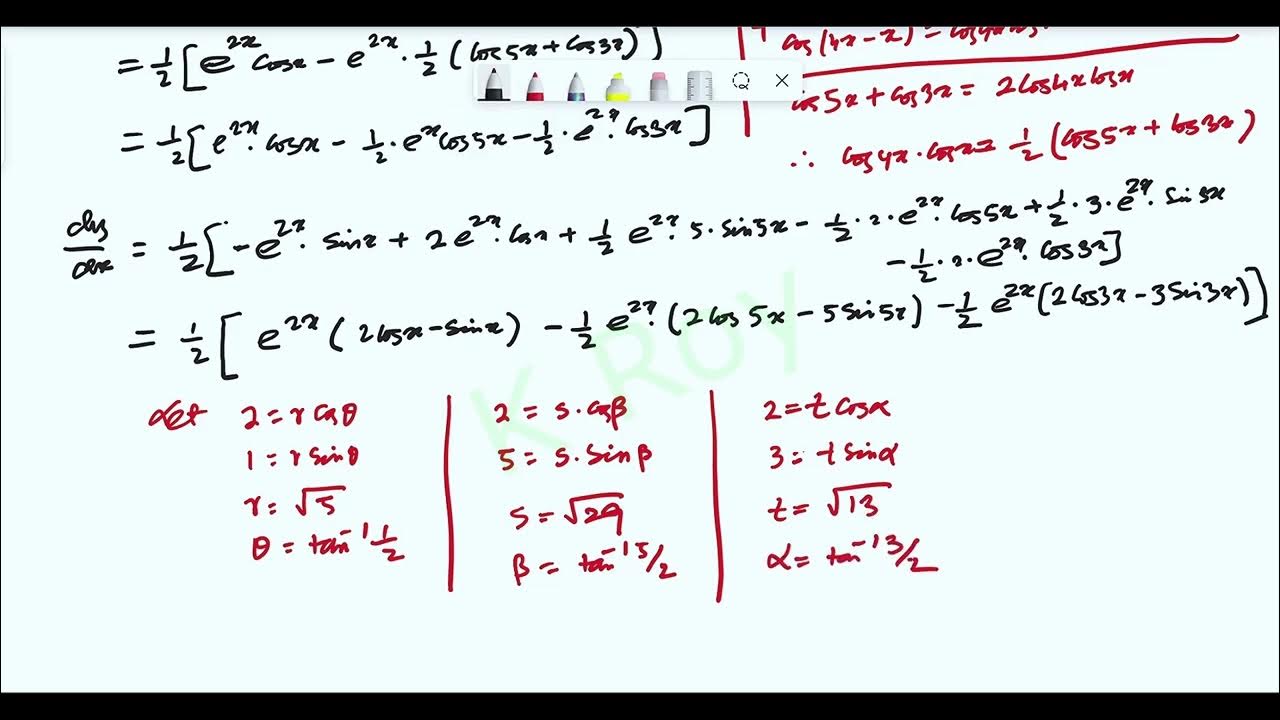 = 1/2 [ e^{2x} cosx - e^{2x} · 1/2 (cos5x + cos3x) ]
= 1/2 [ e^{2x} · cosx - 1/2 · e^{x} cos5x - 1/2 · e^{2x} · cos3x ]
cos(4x-x) =
cos5x + cos3x = 2cos4x cosx
∴ cos4x · cosx = 1/2 (cos5x + cos3x)
dy/dx = 1/2 [ -e^{2x} · sinx + 2e^{2x} · cosx + 1/2 e^{2x} · 5 · sin5x - 1/2 · 2 · e^{2x} · cos5x + 1/2 · 3 · e^{2x} · sin3x
- 1/2 · 2 · e^{2x} · cos3x ]
= 1/2 [ e^{2x} (2cosx - sinx) - 1/2 e^{2x} · (2cos5x - 5sin5x) - 1/2 e^{2x} (2cos3x - 3sin3x) ]
K Roy
Let 2 = r cosθ
1 = r sinθ
r = √5
θ = tan^{-1} 1/2
2 = s · cosβ
5 = s · sinβ
s = √29
β = tan^{-1} 5/2
2 = t cosα
3 = t sinα
t = √13
α = tan^{-1} 3/2